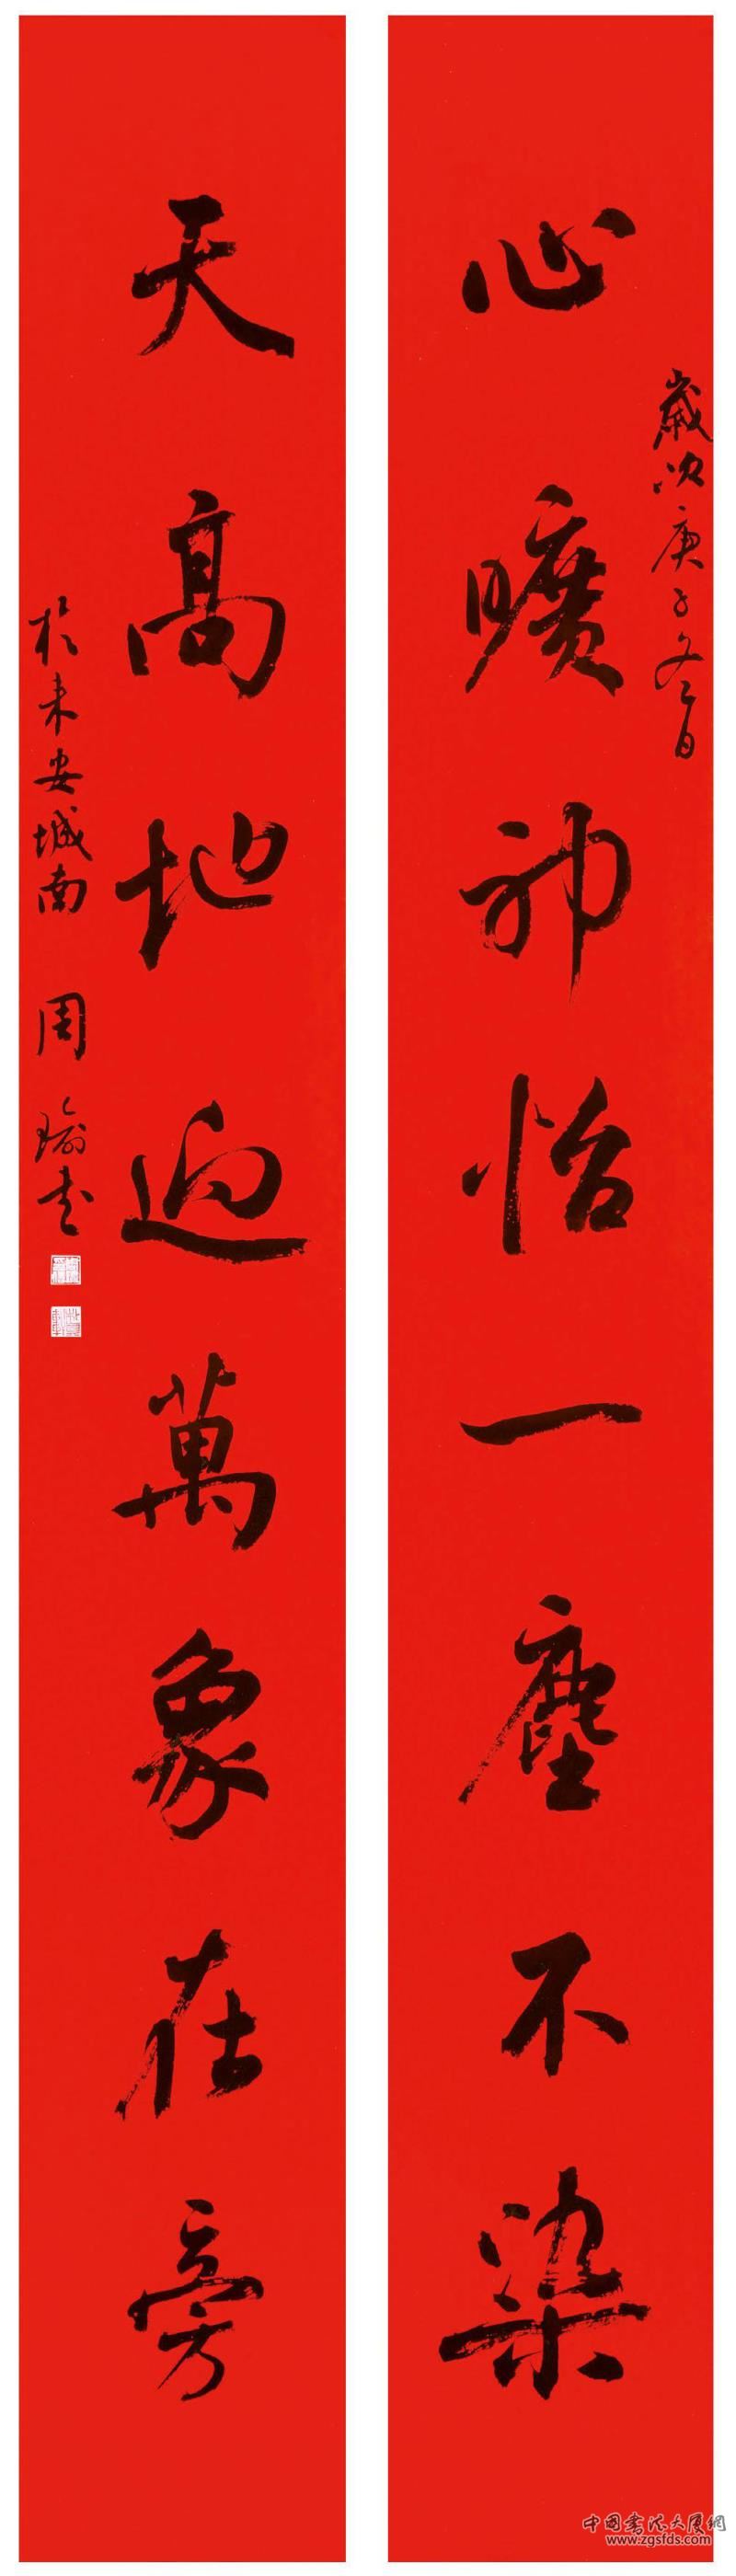 歲次庚子冬日
心曠神怡一塵不染
天高地迥萬象在旁
於未安城南 周瑜書
中国書法大厦網
www.zgsfds.com